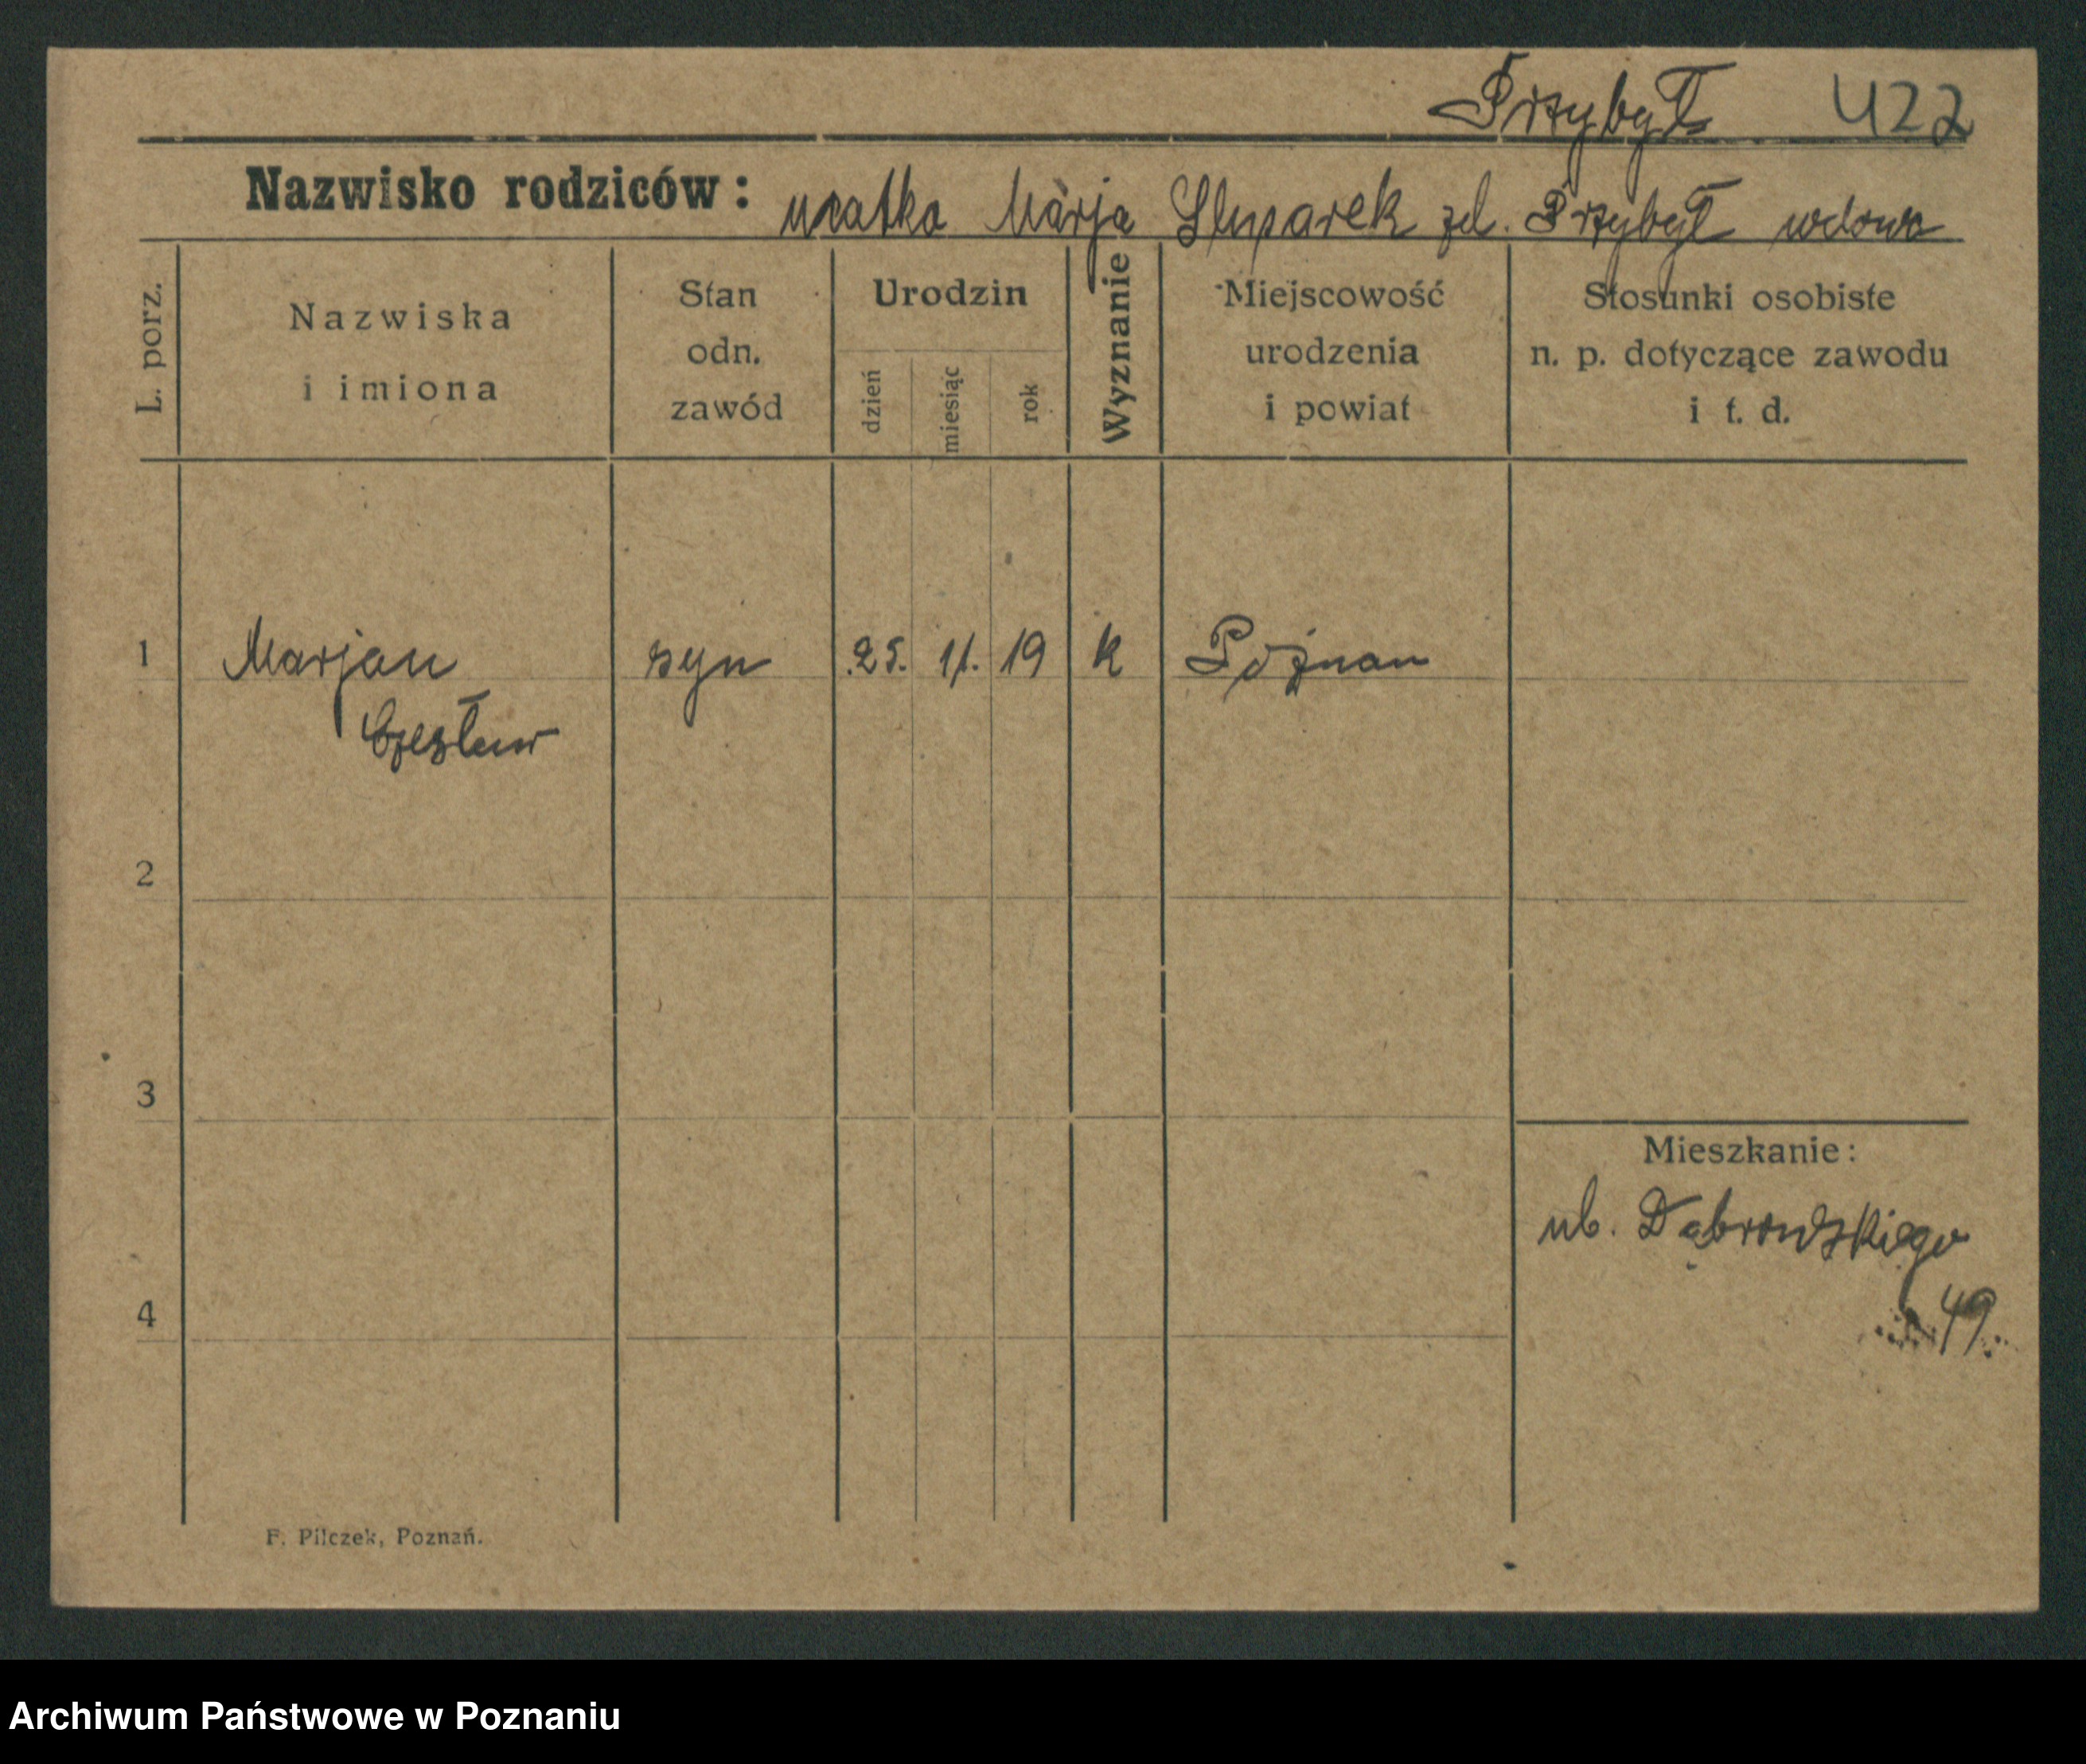 Przybył 422
Nazwisko rodziców: matka Marja Słuparek zd. Przybył wdowa
L. porz.
Nazwiska
i imiona
Stan
odn.
zawód
Urodzin
dzień
miesiąc
rok
Wyznanie
Miejscowość
urodzenia
i powiat
Stosunki osobiste
n. p. dotyczące zawodu
i t. d.
1 Marjan syn 25. 11. 19 k Poznan
Czesław
2
3
Mieszkanie:
ul. Dąbrowskiego
49.
4
F. Pilczek, Poznań.
Archiwum Państwowe w Poznaniu